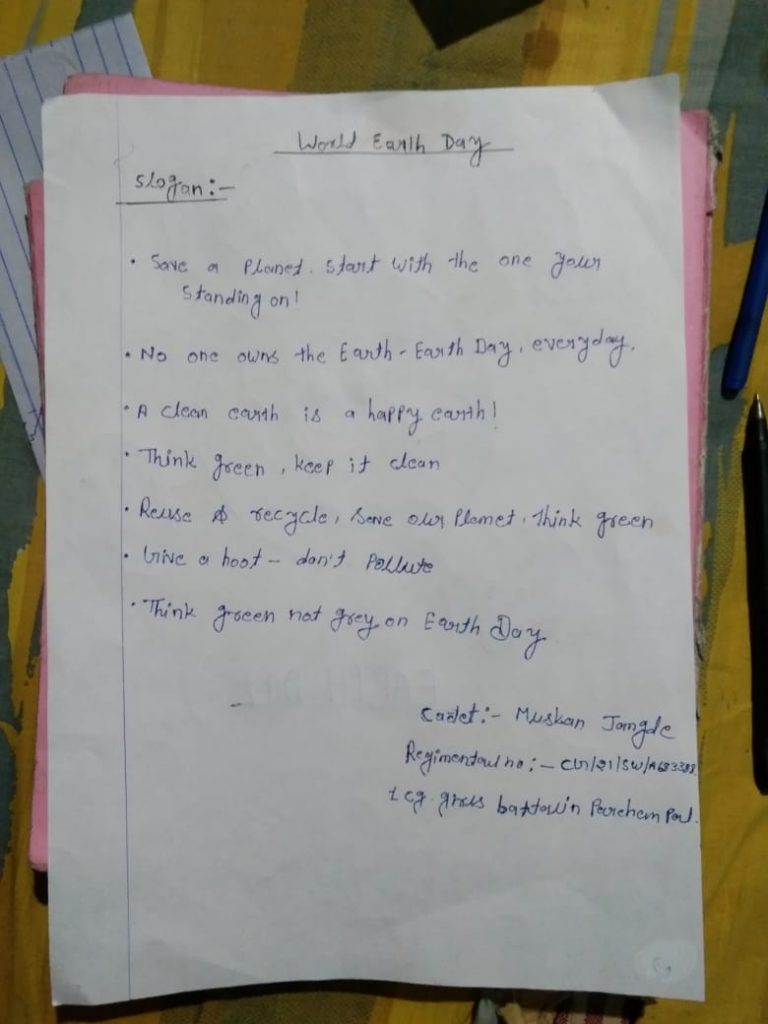 World Earth Day
Slogan:-
• Save a Planet. Start with the one your
Standing on!
• No one owns the Earth - Earth Day, everyday.
• A clean earth is a happy earth!
• Think green, keep it clean
• Reuse & recycle, Save our Planet, Think green
• Give a hoot - don't Pollute
• Think green not grey on Earth Day
Cadet:- Muskan Jangde
Regimental no:-
1 cg girls